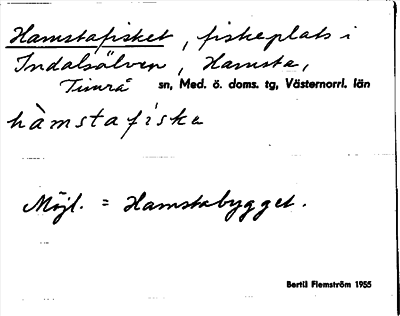 Hamstafisket, fiskeplats i
Indalsälven, Hamsta,
Timrå sn, Med. ö. doms. tg, Västernorrl. län
hàmstafiska
Möjl. = Hamstabygget.
Bertil Flemström 1955